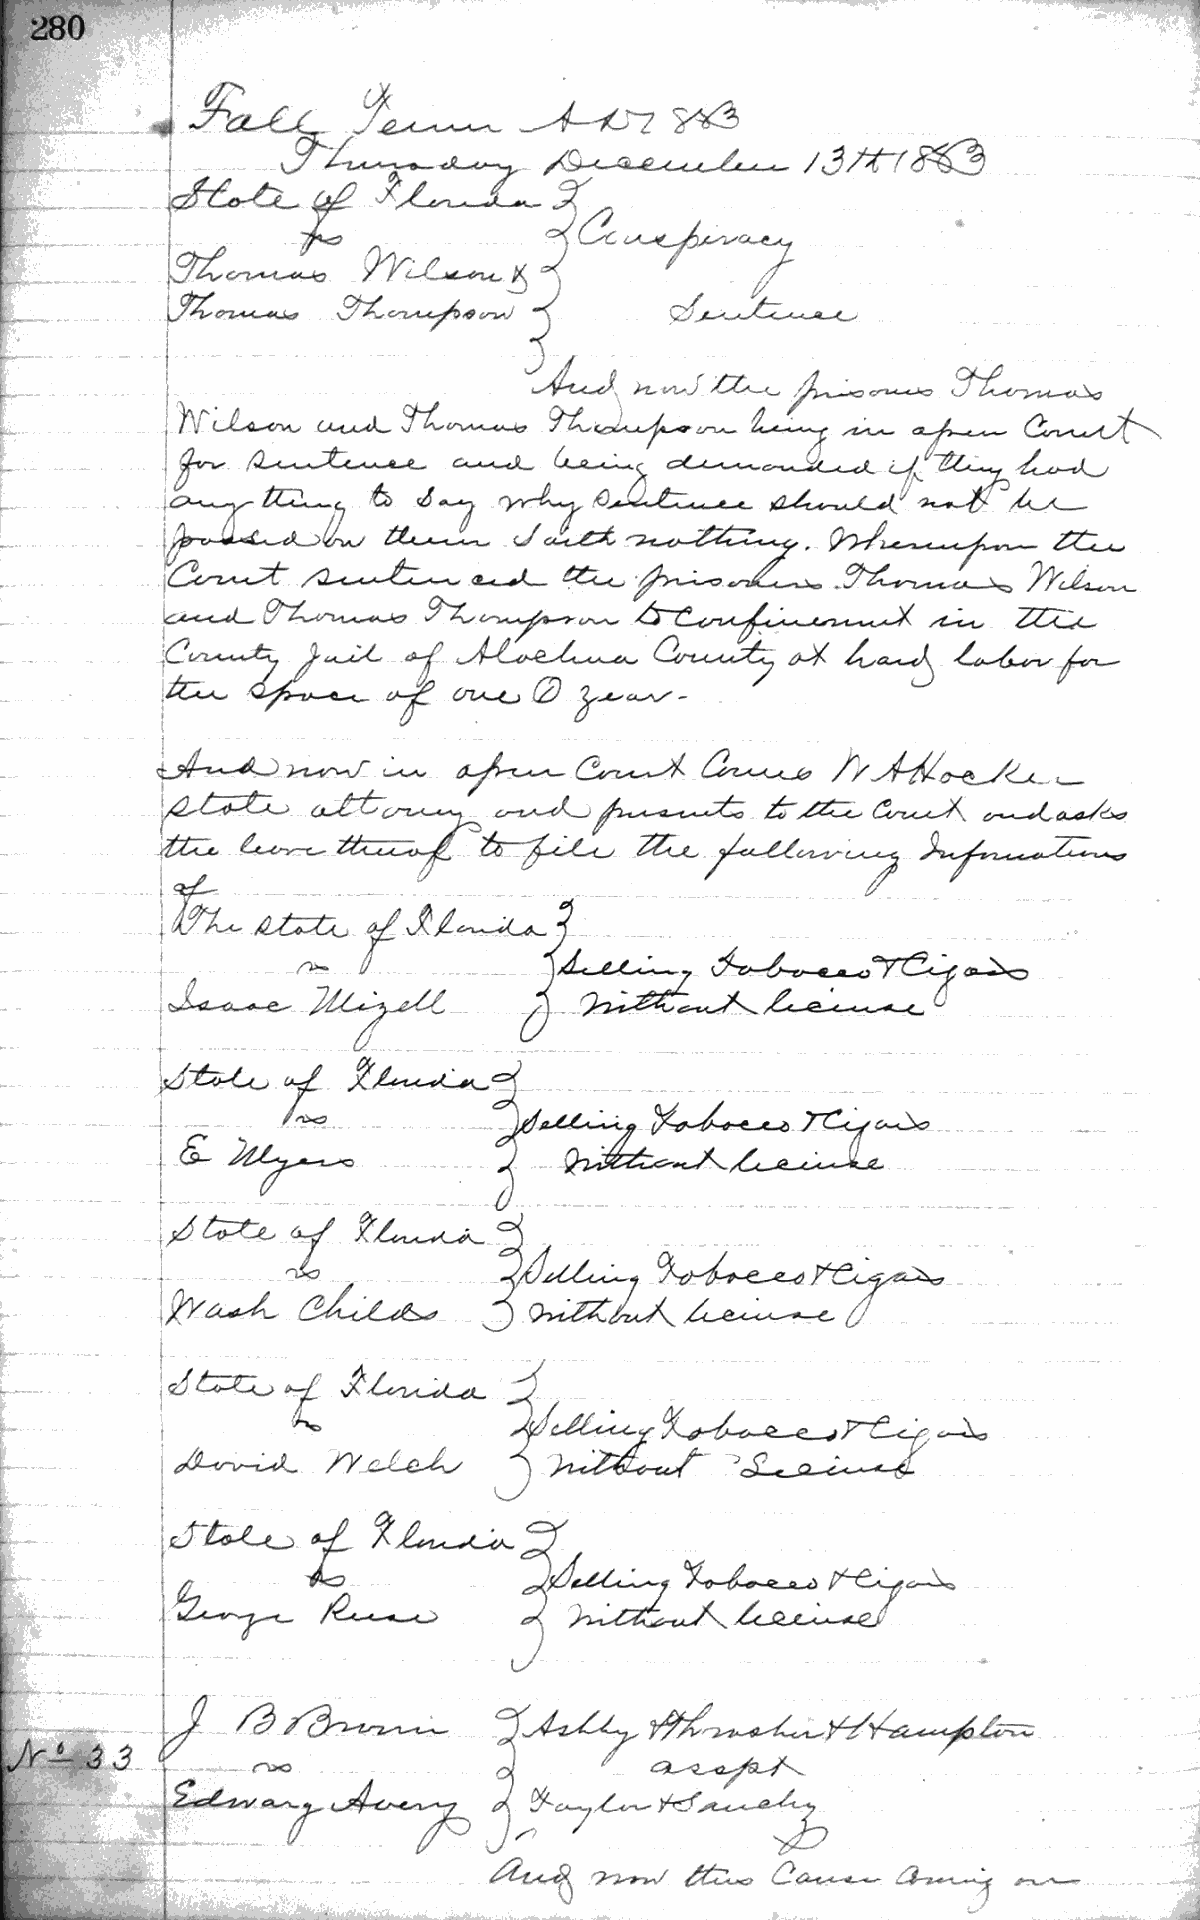 280
Fall Term A D 1883
Thursday December 13th 1883
State of Florida
vs
Conspiracy
Thomas Wilson &
Thomas Thompson
Sentence
And now the prisoners Thomas
Wilson and Thomas Thompson being in open Court
for sentence and being demanded if they had
any thing to say why sentence should not be
passed on them saith nothing. Whereupon the
Court sentenced the prisoners Thomas Wilson
and Thomas Thompson to confinement in the
County Jail of Alachua County at hard labor for
the space of one (1) year -
And now in open Court Comes W A Hocker
State attorney and presents to the Court and asks
the leave thereof to file the following Informations
of
The State of Florida
vs
Selling Tobacco & Cigars
Isaac Mizell
without license
State of Florida
vs
Selling Tobacco & Cigars
E Myers
without license
State of Florida
vs
Selling Tobacco & Cigars
Wash Childs
without license
State of Florida
vs
Selling Tobacco & Cigars
David Welch
without License
State of Florida
vs
Selling Tobacco & Cigars
George Reese
without license
J B Brown
Ashby & Thrasher & Hampton
No 33
vs
asspt
Edward Avery
Taylor & Sanchez
And now this Cause Coming on